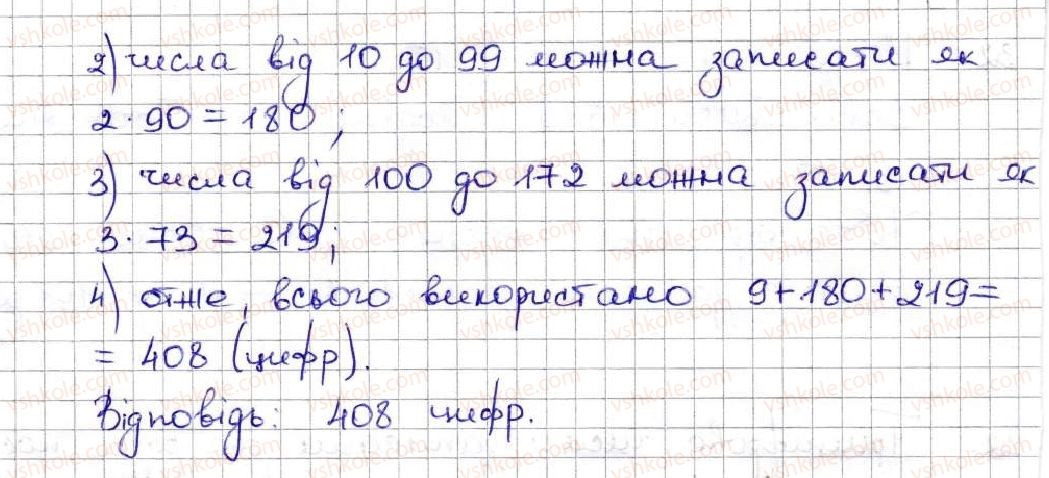 2) числа від 10 до 99 можна записати як
2·90=180;
3) числа від 100 до 172 можна записати як
3·73=219;
4) отже, всього використано 9+180+219=
= 408 (цифр).
Відповідь: 408 цифр.